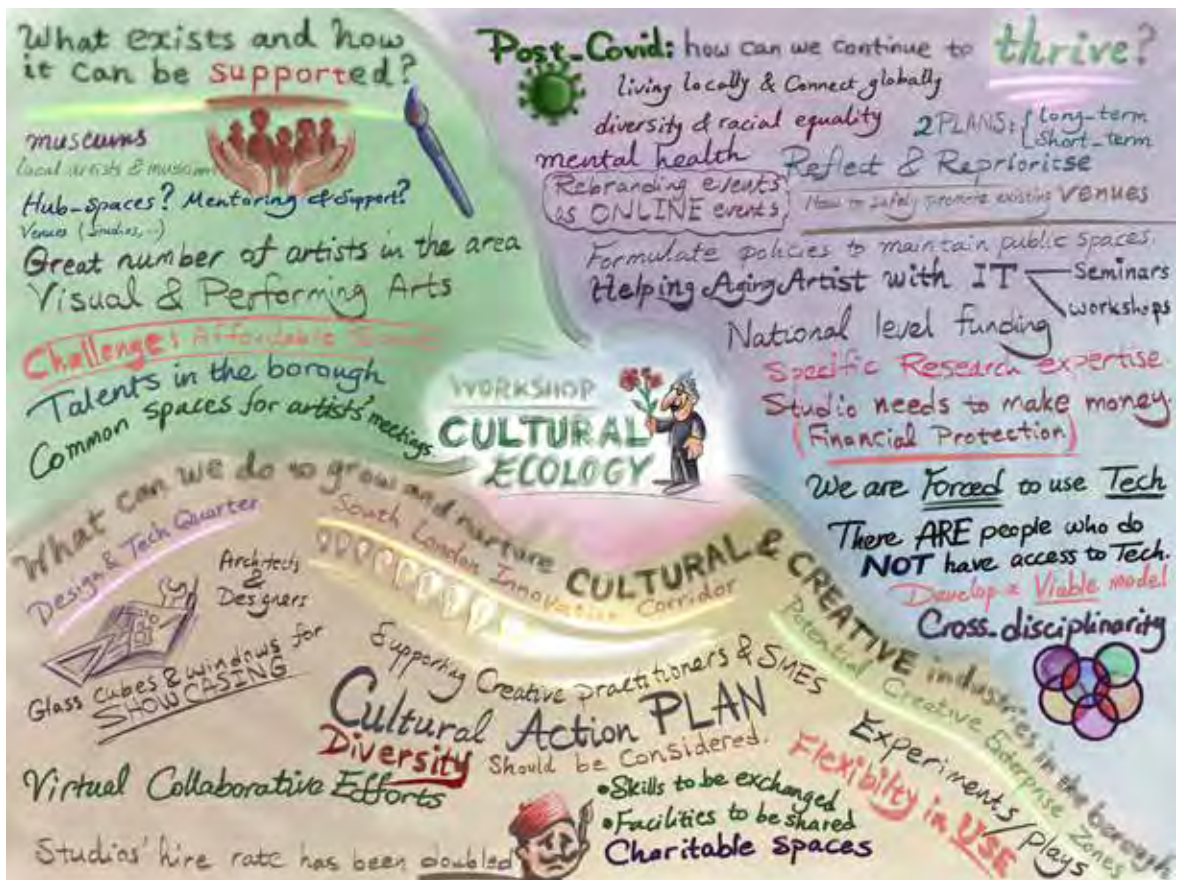 What exists and how
it can be supported?
museums
Local artists & museum
Hub-spaces? Mentoring & Support?
Venues (Studios,...)
Great number of artists in the area
Visual & Performing Arts
Challenge: Affordable
Talents in the borough
Common spaces for artists' meetings
Post-Covid: how can we continue to thrive?
living locally & Connect globally
diversity & racial equality
2 PLANS: Long-term
Short-term
mental health
Reflect & Reprioritse
Rebranding events
as ONLINE events
How to Safely promote existing VENUES
Formulate policies to maintain public spaces.
Helping Aging Artist with IT
Seminars
workshops
National level funding
Specific Research expertise
Studio needs to make money.
(Financial Protection)
We are Forced to use Tech
There ARE people who do
NOT have access to Tech.
Develop a Viable model
Cross-disciplinarity
WORKSHOP
CULTURAL
ECOLOGY
What can we do to grow and nurture CULTURAL & CREATIVE industries in the borough
Design & Tech Quarter
South London Innovation Corridor
Potential Creative Enterprise Zones
Architects
&
Designers
Glass cubes & windows for
SHOWCASING
Supporting Creative practitioners & SMES
Cultural Action PLAN
Diversity Should be Considered.
Virtual Collaborative Efforts
•Skills to be exchanged
•Facilities to be shared
Charitable Spaces
Studios' hire rate has been doubled
Experiments/Plays
Flexibilty in USE